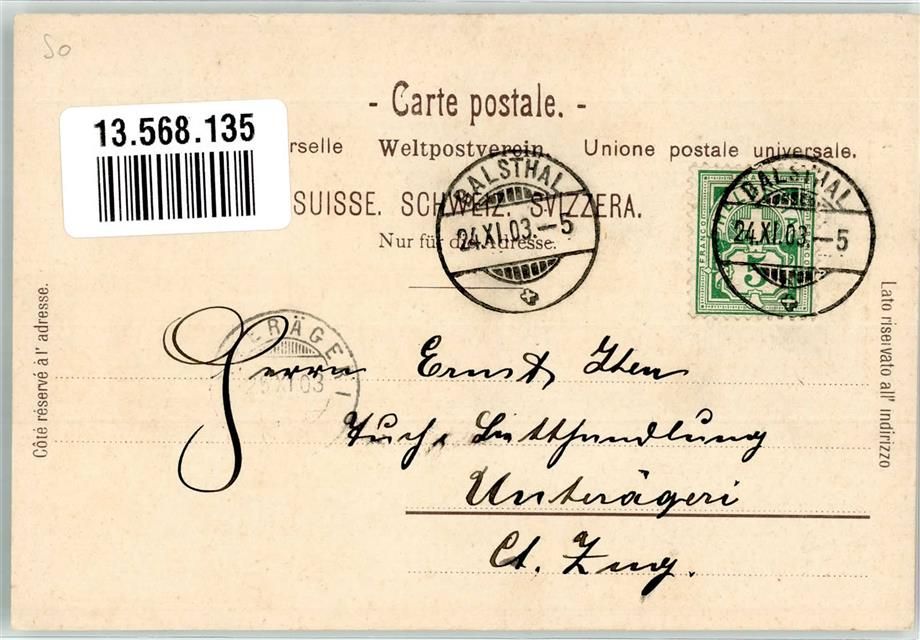 So
- Carte postale. -
13.568.135
rselle Weltpostverein. Unione postale universale.
SUISSE. SCHWEIZ. SVIZZERA.
Nur für die Adresse.
BALSTHAL
24.XI.03.-5
BALSTHAL
24.XI.03.-5
FRANCO
5
Côté réservé à l'adresse.
Lato riservato all' indirizzo
ÄGERI
25.XI.03
Herrn Ernst Iten
Tuch & Betthandlung
Unterägeri
Ct. Zug.